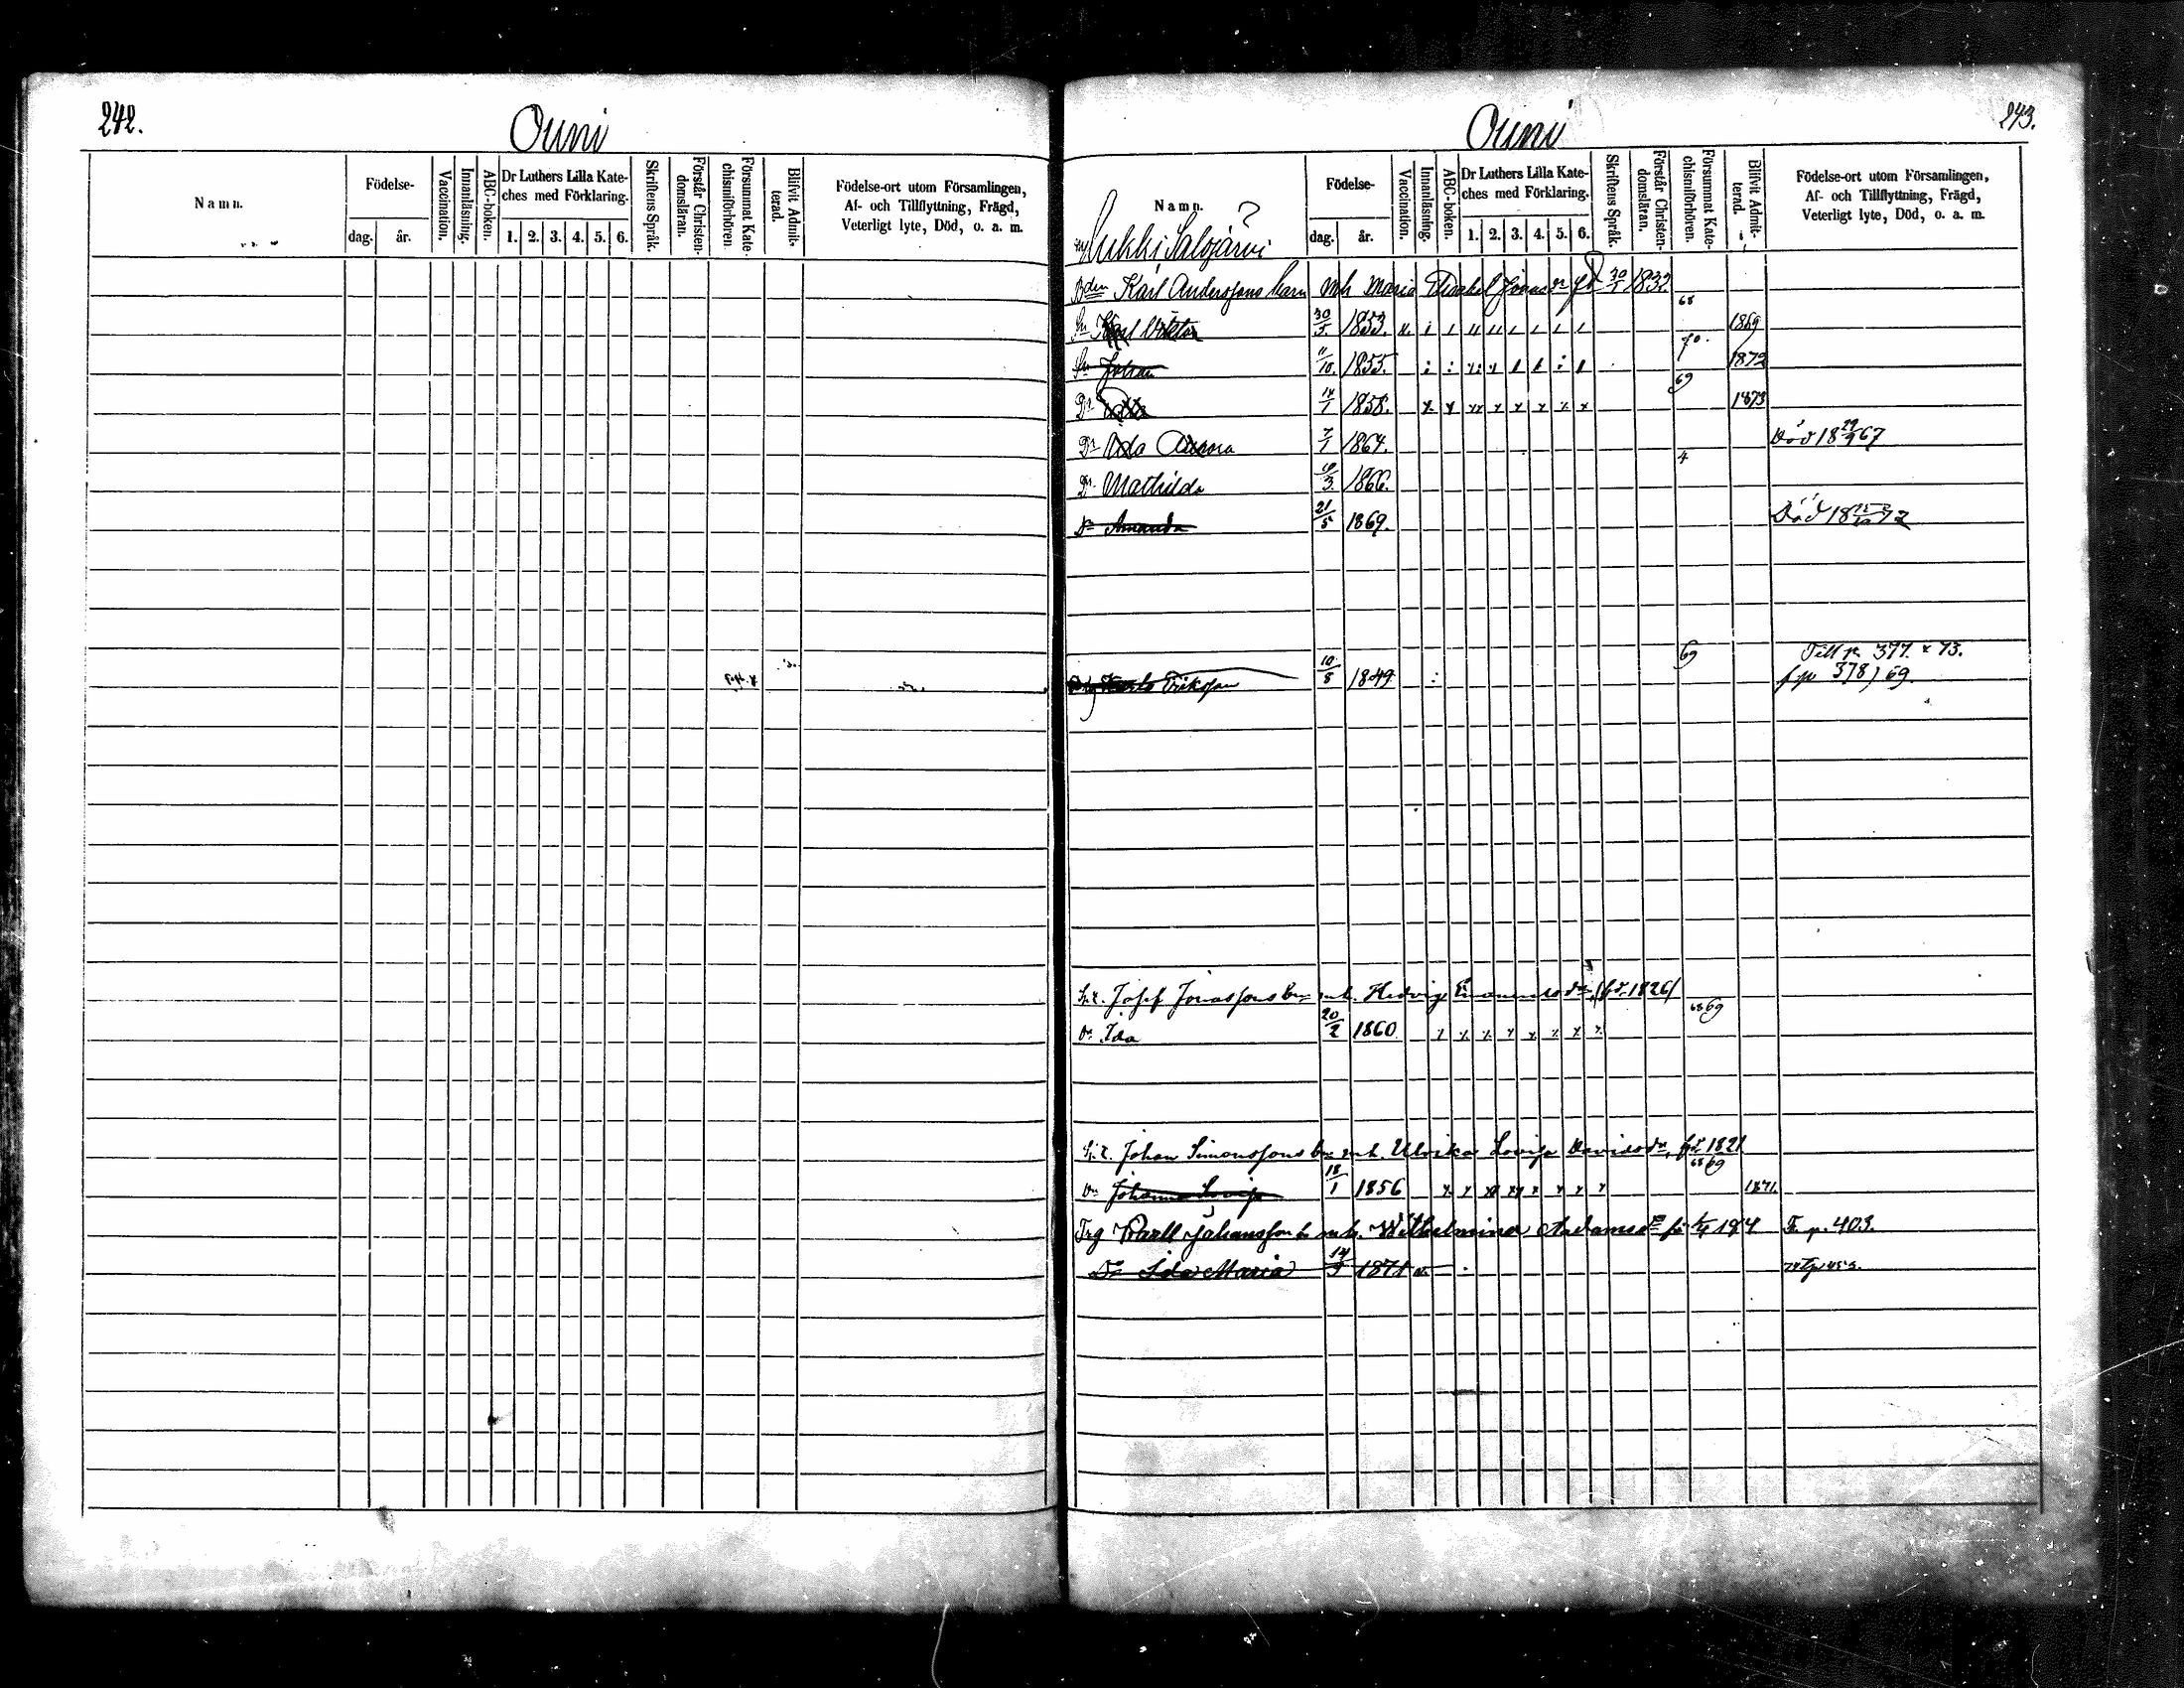 242.
Ouni
Namn.
Födelse-
dag.
år.
Vaccination.
Innanläsning.
ABC-boken.
Dr Luthers Lilla Kate-
ches med Förklaring.
1. 2. 3. 4. 5. 6.
Skriftens Språk.
Förstår Christen-
domsläran.
Försummat Kate-
chismiförhören.
Blifvit Admit-
terad.
Födelse-ort utom Församlingen,
Af- och Tillflyttning, Frägd,
Veterligt lyte, Död, o. a. m.
Ouni
243.
Namn.
Födelse-
dag.
år.
Vaccination.
Innanläsning.
ABC-boken.
Dr Luthers Lilla Kate-
ches med Förklaring.
1. 2. 3. 4. 5. 6.
Skriftens Språk.
Förstår Christen-
domsläran.
Försummat Kate-
chismiförhören.
Blifvit Admit-
terad.
Födelse-ort utom Församlingen,
Af- och Tillflyttning, Frägd,
Veterligt lyte, Död, o. a. m.
Salojärvi ?
Bden Karl Anderssons barn mh Maria 1832
Sn Karl Viktor 30/5 1853. 68 1869
Sn Johan 11/10 1855. 70. 1872
Dr 14/1 1858. 69 1873
Dr Ida Aurora 7/1 1864. Död 18 29/9 67
Dr Mathilda 1866. 4
Dr Amanda 21/5 1869. Död 18 72
Eriksson 10/8 1849 69 Till p. 377. 73.
f p 378) 69
Josef Jonassons bn mh. Hedvig (fd. 1826)
Dr Ida 20/2 1860 68 69
Johan Simonssons bn mh. Ulrika Lovisa Davidsdr, fd 1821
Dr Johanna Lovisa 18/1 1856 68 69 1871.
Trg Karll Johansson b mh. Wilhelmina Aadamsdr F. p. 403.
Dr Ida Maria 14/9 1871